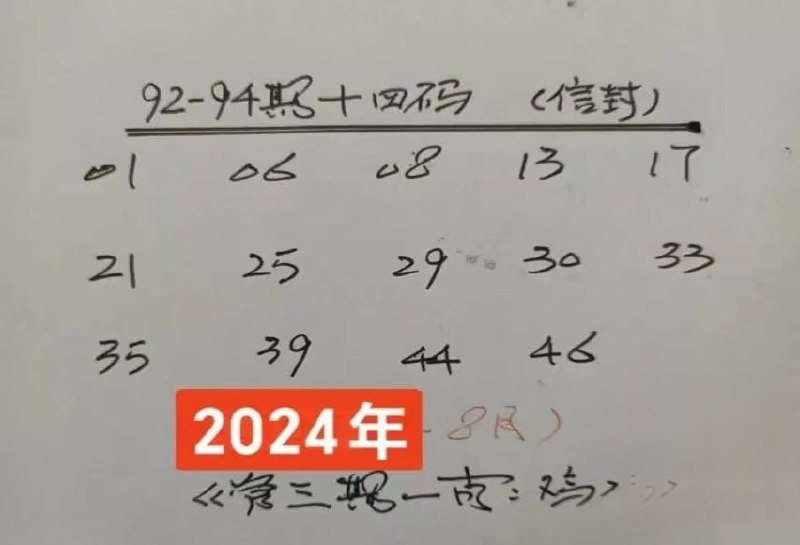 92-94期十四码 (信封)
01 06 08 13 17
21 25 29 30 33
35 39 44 46
2024年 - 8月)
三期一肖:鸡